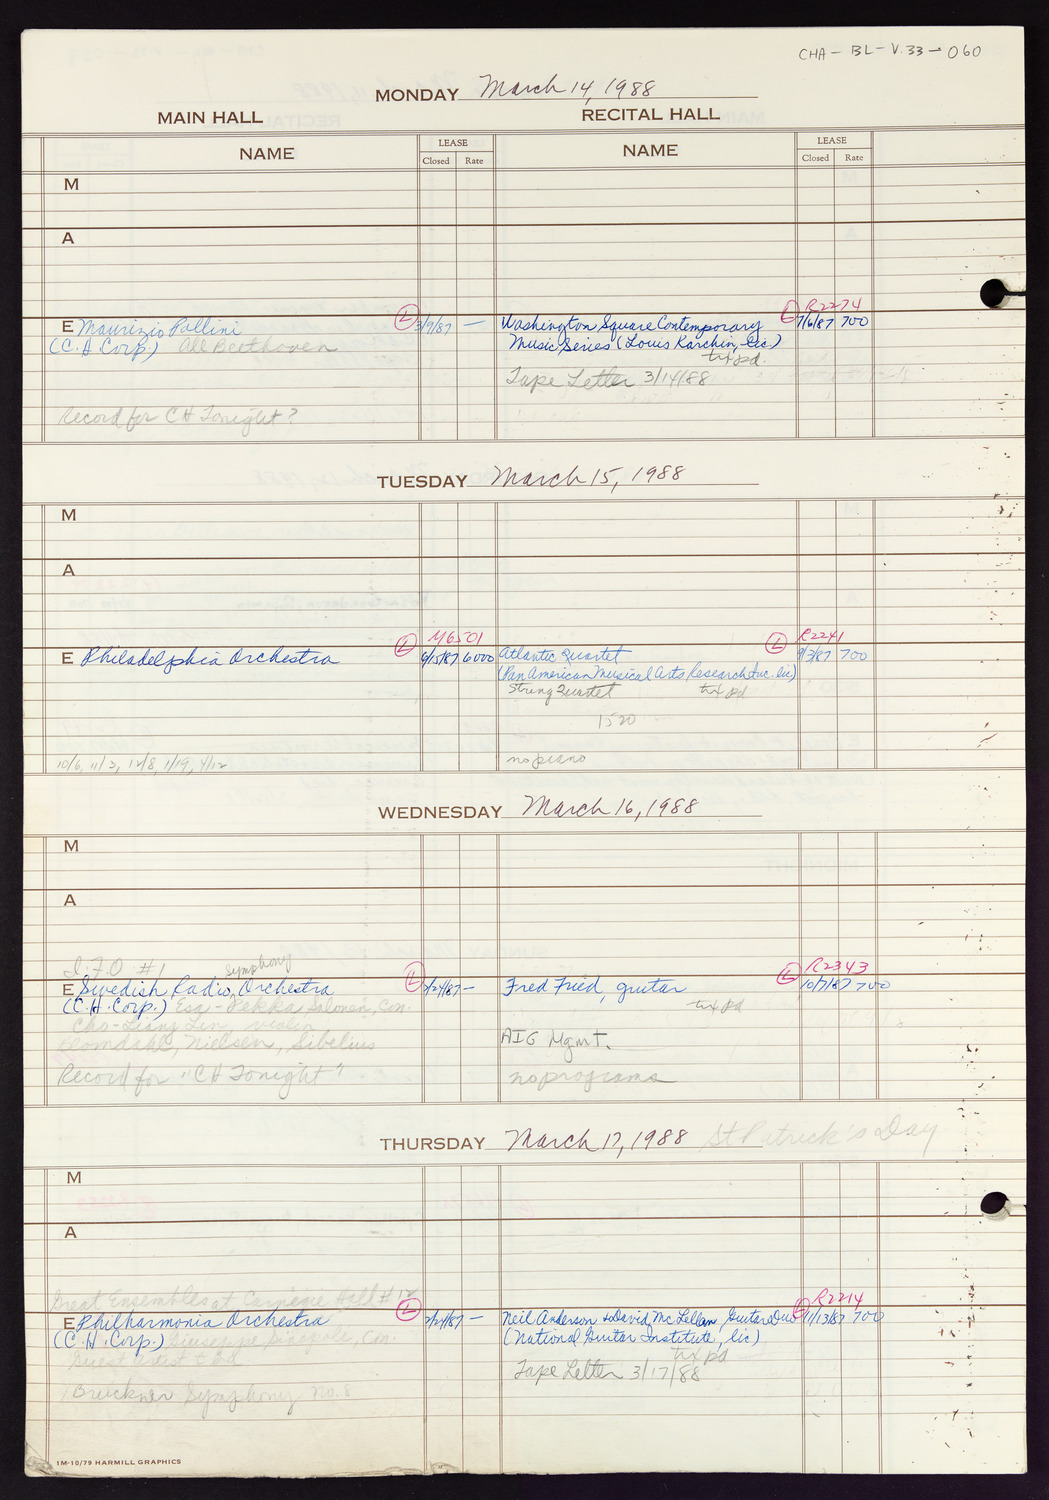 CHA - BL - V.33 - 060
MONDAY March 14, 1988
MAIN HALL RECITAL HALL
NAME LEASE Closed Rate NAME LEASE Closed Rate
M
A
R2274
E Maurizio Pollini L 3/9/87 — Washington Square Contemporary L 7/6/87 700
(C.H. Corp.) All Beethoven Music Series (Louis Karchin, lic.)
tax pd.
Tape Letter 3/14/88
Record for CH Tonight?
TUESDAY March 15, 1988
M
A
M6501 R2241
E Philadelphia Orchestra L 6/15/87 6000 Atlantic Quartet L 9/3/87 700
(Pan American Musical Arts Research Inc. lic)
String Quartet tax pd
1520
10/6, 11/3, 12/8, 1/19, 4/12 no piano
WEDNESDAY March 16, 1988
M
A
I.F.O #1
Symphony R2343
E Swedish Radio Orchestra L /87 — Fred Fried, guitar L 10/7/87 700
(C.H. Corp.) Esa-Pekka Salonen, Con. tax pd
Cho-Liang Lin, violin
Blomdahl, Nielsen, Sibelius AIG Mgmt.
Record for "CH Tonight" no programs
THURSDAY March 17, 1988 St Patrick's Day
M
A
Great Ensembles at Carnegie Hall #12 R2214
E Philharmonia Orchestra L /87 — Neil Anderson & David McLellan, Guitar Duo L 11/13/87 700
(C.H. Corp.) Giuseppe Sinopoli, Con. (National Guitar Institute, lic)
Guest artist t.b.a. tax pd
Tape Letter 3/17/88
Bruckner Symphony No. 8
1M-10/79 HARMILL GRAPHICS